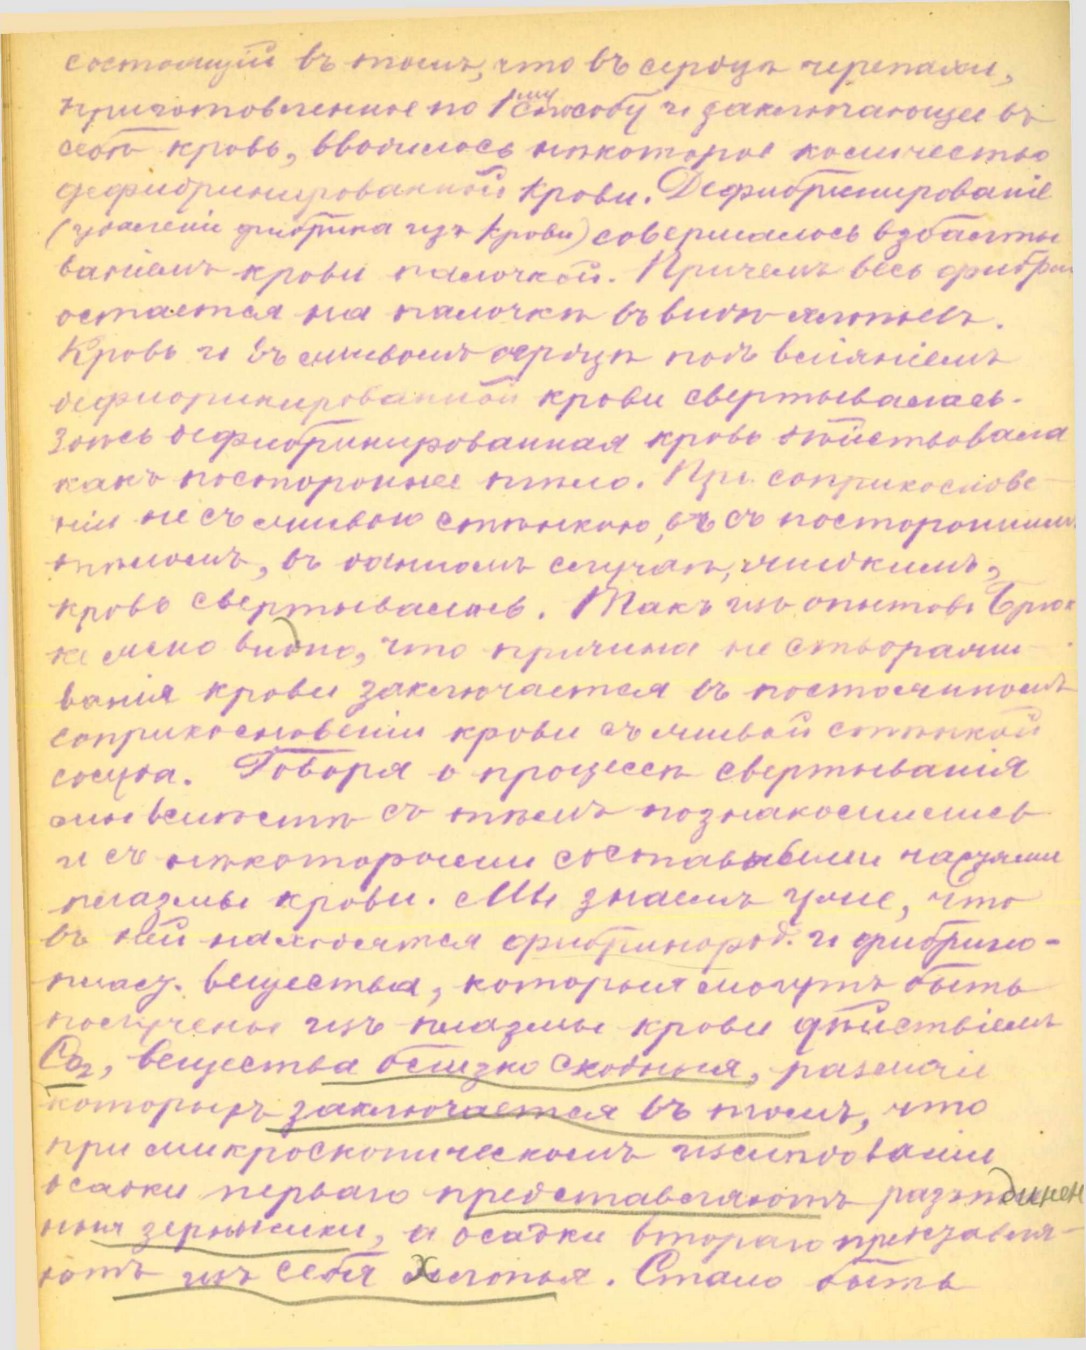 состоящій въ томъ, что въ сердце черепахи,
приготовленное по 1му способу и заключающее въ
себѣ кровь, вводилось нѣкоторое количество
дефибринированной крови. Дефибринированіе
(удаленіе фибрина изъ крови) совершалось взбалты
ваніемъ крови палочкой. Причемъ весь фибрин
остается на палочкѣ въ видѣ хлопьевъ.
Кровь и въ живомъ сердцѣ подъ вліяніемъ
дефибринированной крови свертывалась.
Здѣсь дефибринированная кровь дѣйствовала
какъ постороннее тѣло. При соприкоснове-
ніи не съ живою стѣнкою, а съ постороннимъ
тѣломъ, въ данномъ случаѣ, жидкимъ,
кровь свертывалась. Такъ изъ опытовъ Брюк
ке ясно видно, что причина не створажи-
ванія крови заключается въ постоянномъ
соприкосновеніи крови съ живой стѣнкой
сосуда. Говоря о процессѣ свертыванія
мы вмѣстѣ съ тѣмъ познакомились
и съ нѣкоторыми составными частями
плазмы крови. Мы знаемъ уже, что
въ ней находятся фибриногрод. и фибрино-
пласт. вещества, которыя могутъ быть
получены изъ плазмы крови дѣйствіемъ
Co2, вещества близко сходныя, различіе
которыхъ заключается въ томъ, что
при микроскопическомъ изслѣдованіи
осадки перваго представляютъ разъединен
ныя зернышки, а осадки второго представля-
ютъ изъ себя хлопья. Стало быть